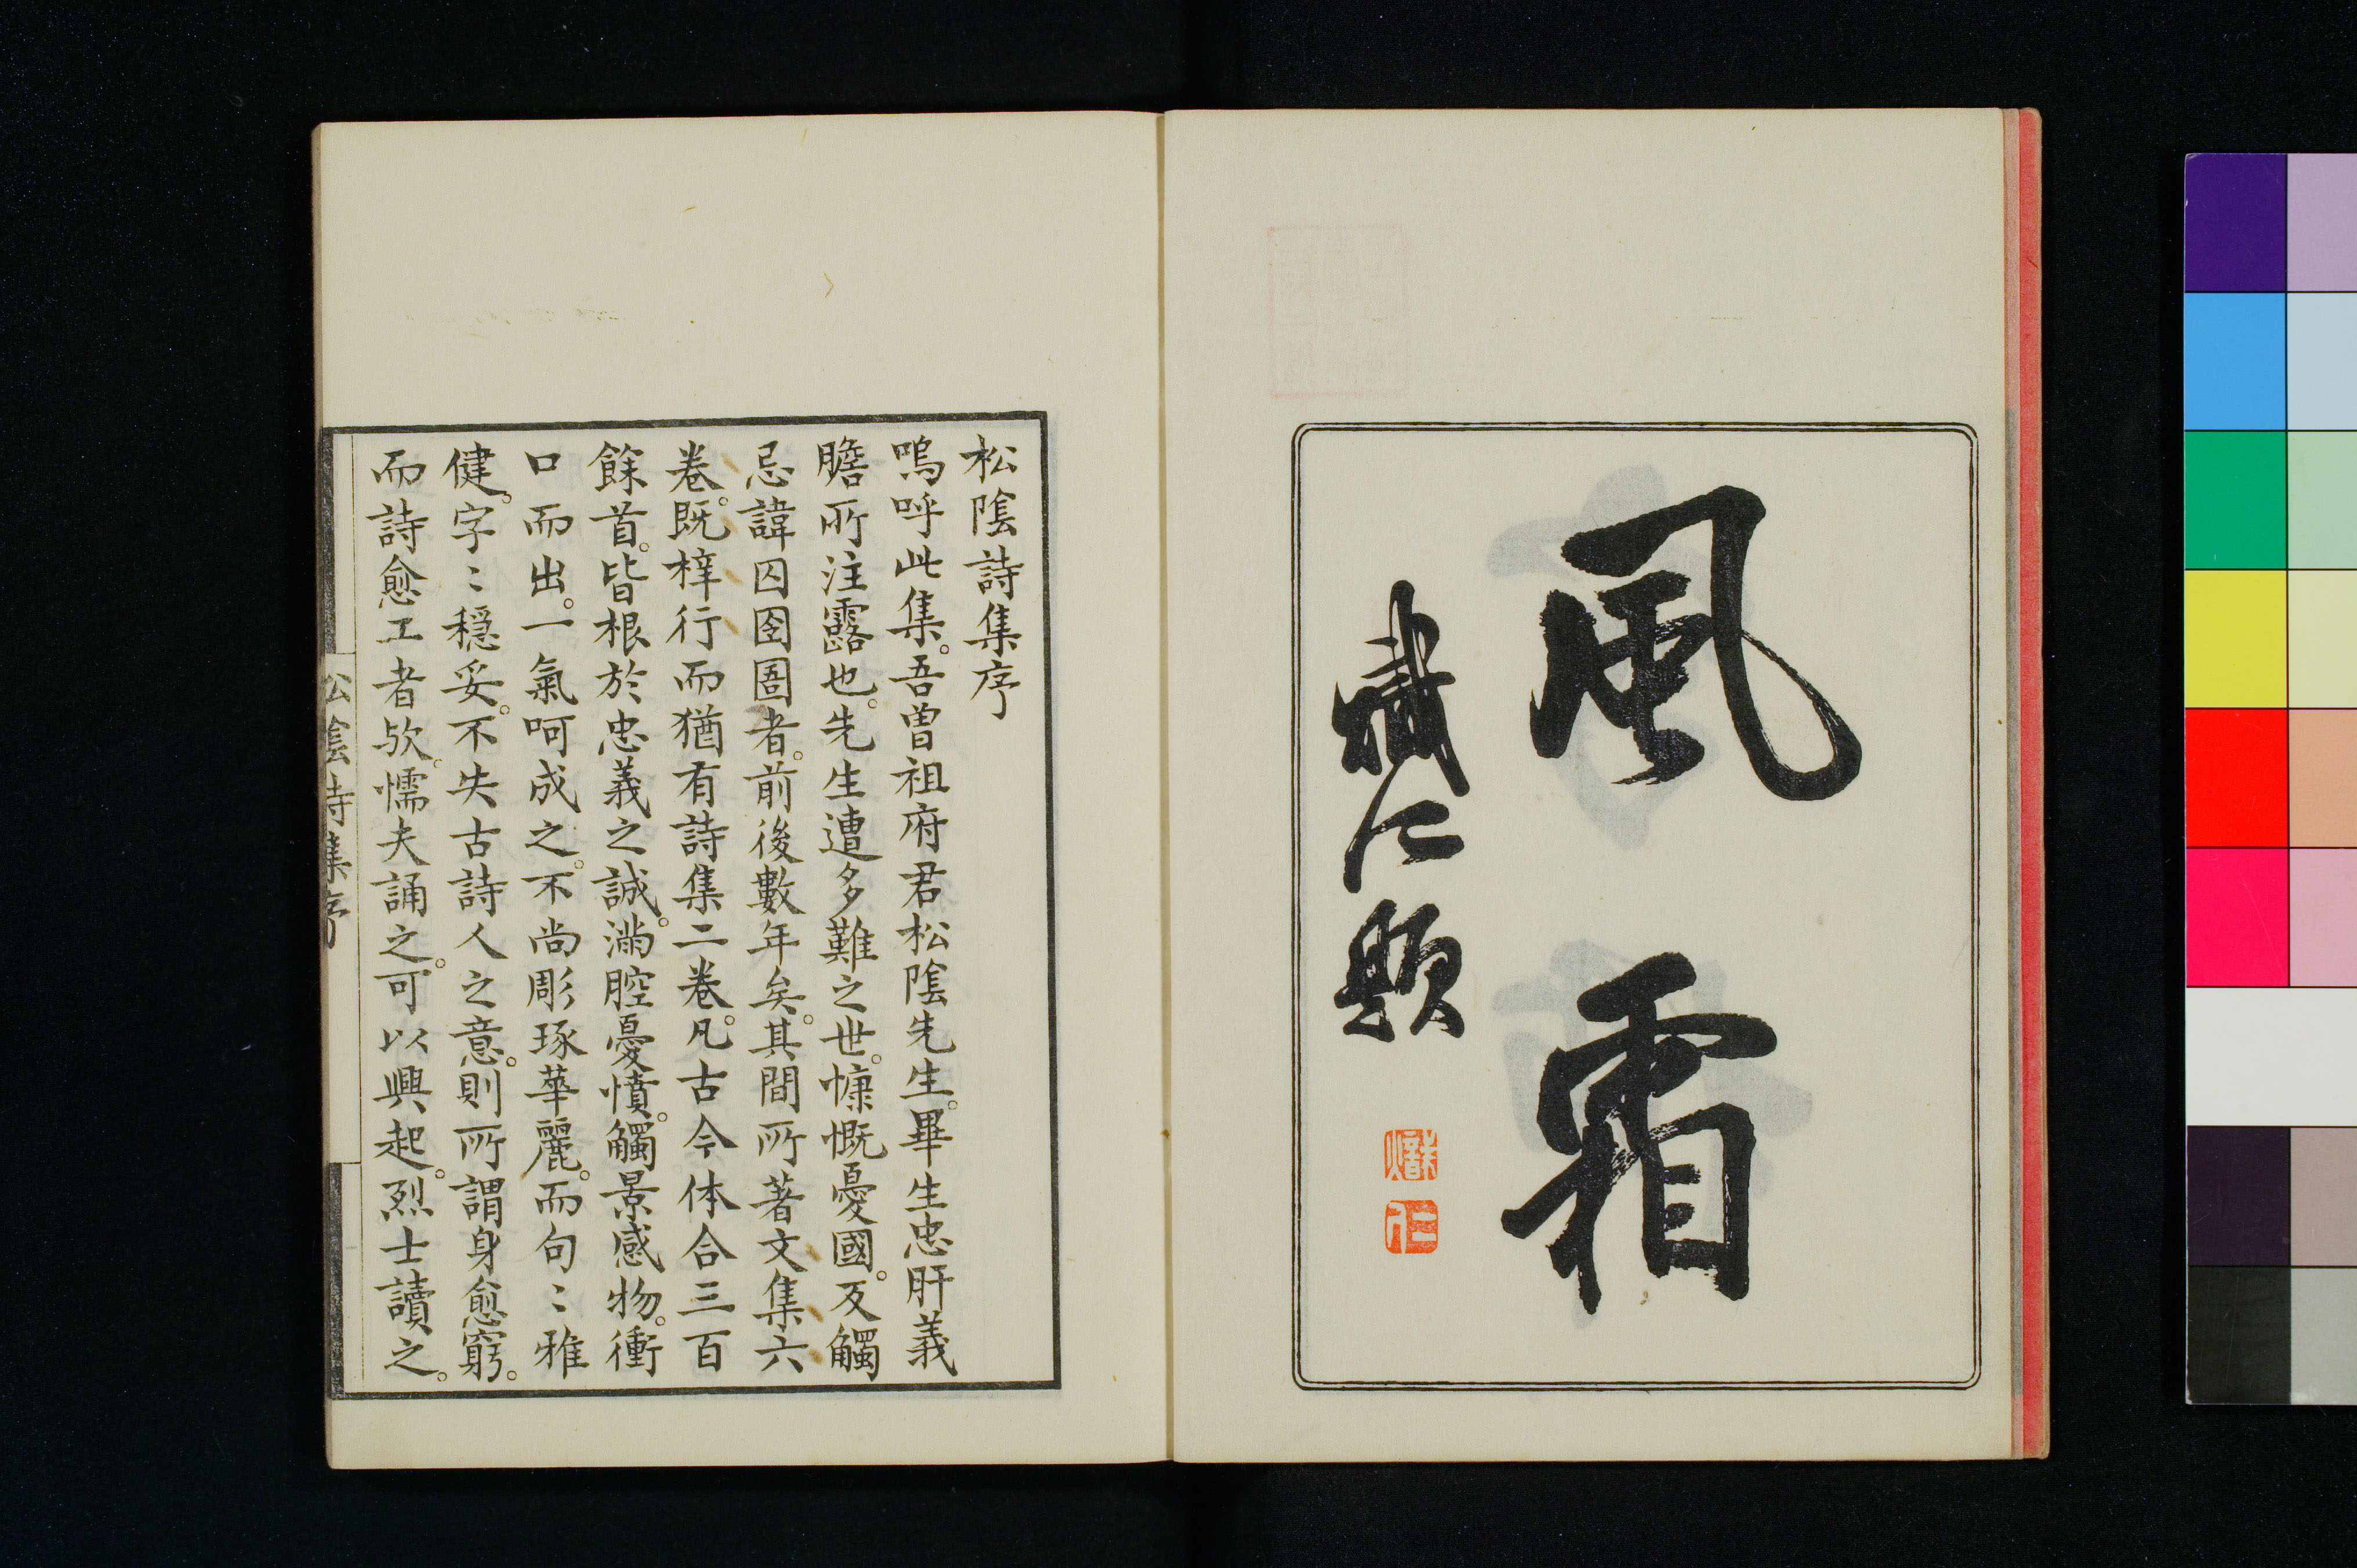 風霜
熾仁題
熾
仁
松陰詩集序
嗚呼此集。吾曽祖府君松陰先生。畢生忠肝義
膽所注露也。先生遭多難之世。慷慨憂國。及觸
忌諱囚囹圄者。前後數年矣。其間所著文集六
巻。既梓行而猶有詩集二巻。凡古今体合三百
餘首。皆根於忠義之誠。滿腔憂憤。觸景感物。衝
口而出。一氣呵成之。不尚彫琢華麗。而句〻雅
健。字〻穏妥。不失古詩人之意。則所謂身愈窮。
而詩愈工者欤。懦夫誦之。可以興起。烈士讀之。
松陰詩集序